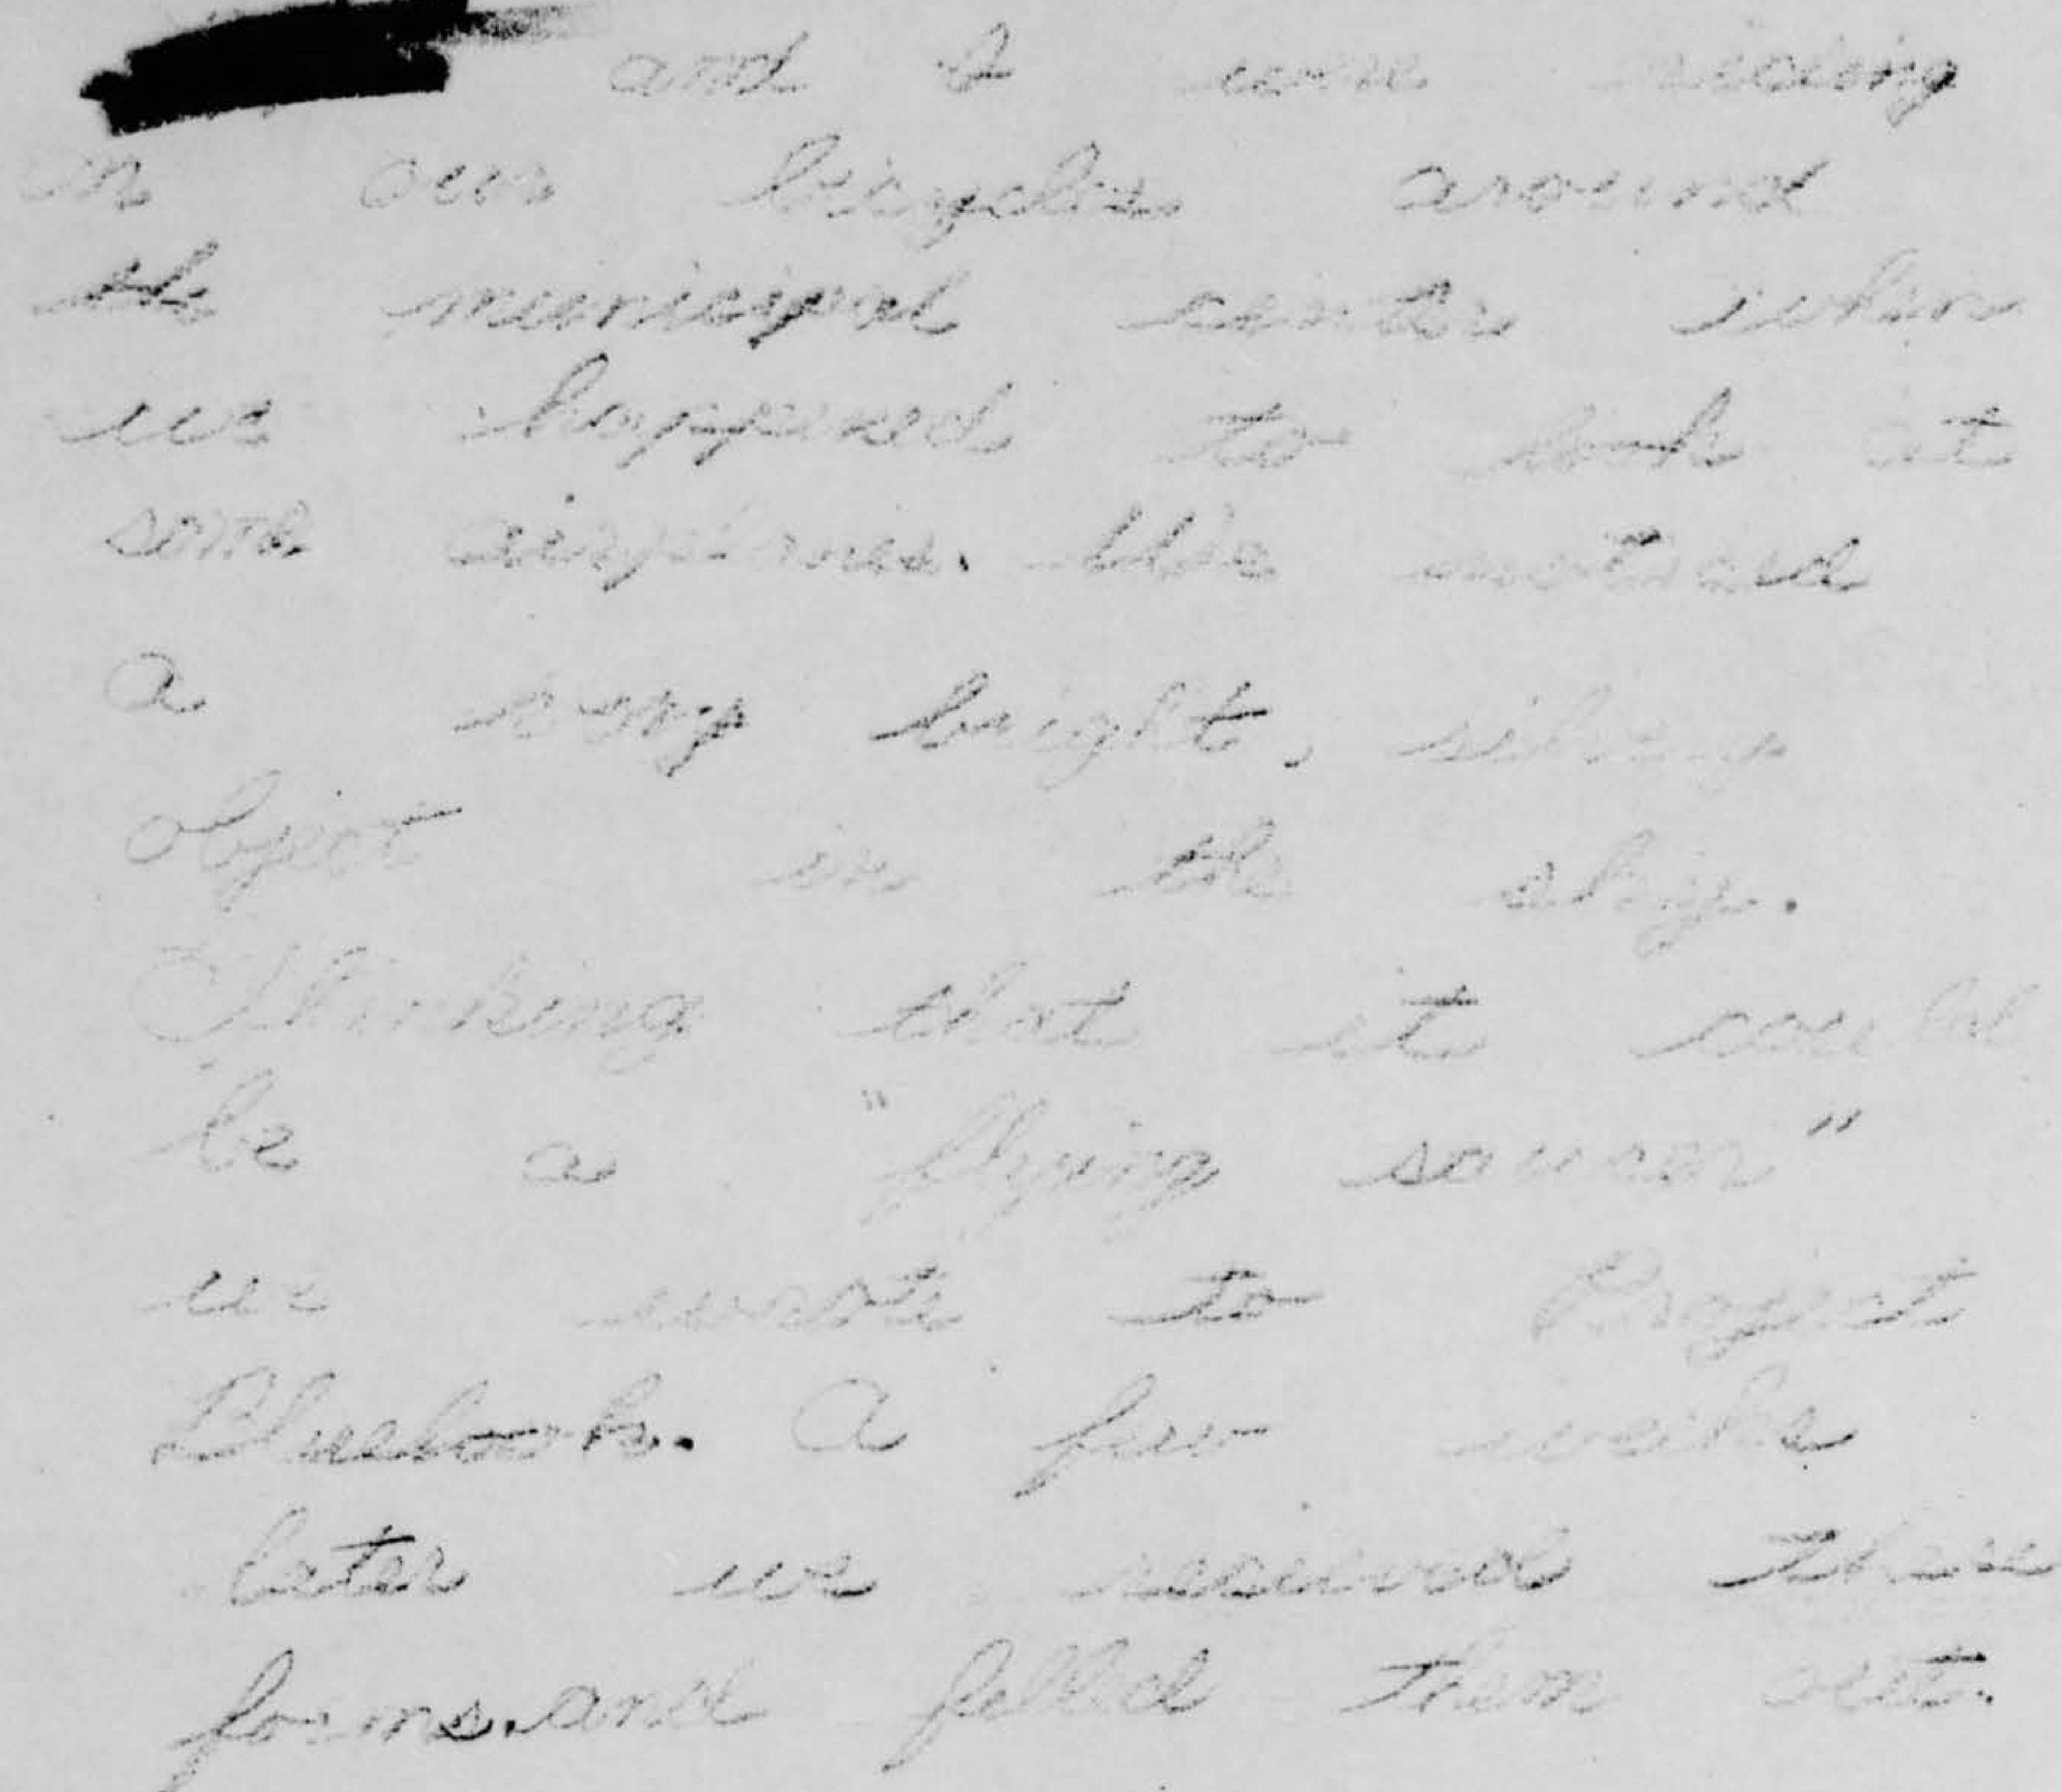 and I were riding
on our bicycles around
the municipal center when
we happened to look at
some airplanes. We noticed
a very bright, silvery
object in the sky.
Thinking that it could
be a "flying saucer"
we wrote to Project
Bluebook. A few weeks
later we received these
forms and filled them out.